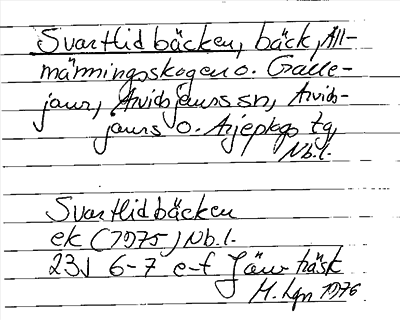 Svartlidbäcken, bäck, All-
männingsskogen o. Galle-
jaur, Arvidsjaurs sn, Arvids-
jaurs o. Arjeplogs tg,
Nb.l.
Svartlidbäcken
ek (1975) Nb.l.
23J 6-7 e-f Järvträsk
M. Lgn 1976